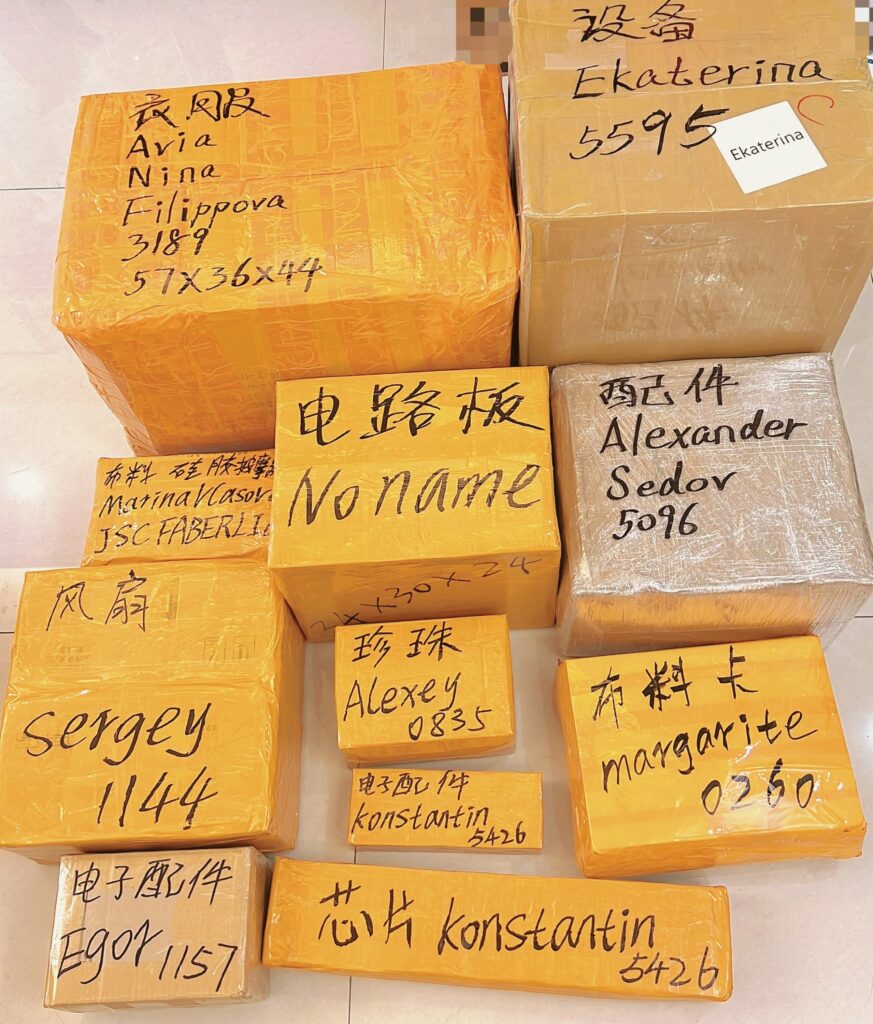 衣服
Aria
Nina
Filippova
3189
57X36X44
设备
Ekaterina
5595
Ekaterina
布料 硅胶按摩
Marina Vlasov
JSC FABERLI
电路板
No name
配件
Alexander
Sedov
5096
风扇
Sergey
1144
珍珠
Alexey
0835
布料卡
margarite
0260
电子配件
konstantin
5426
电子配件
Egor 1157
芯片 konstantin
5426